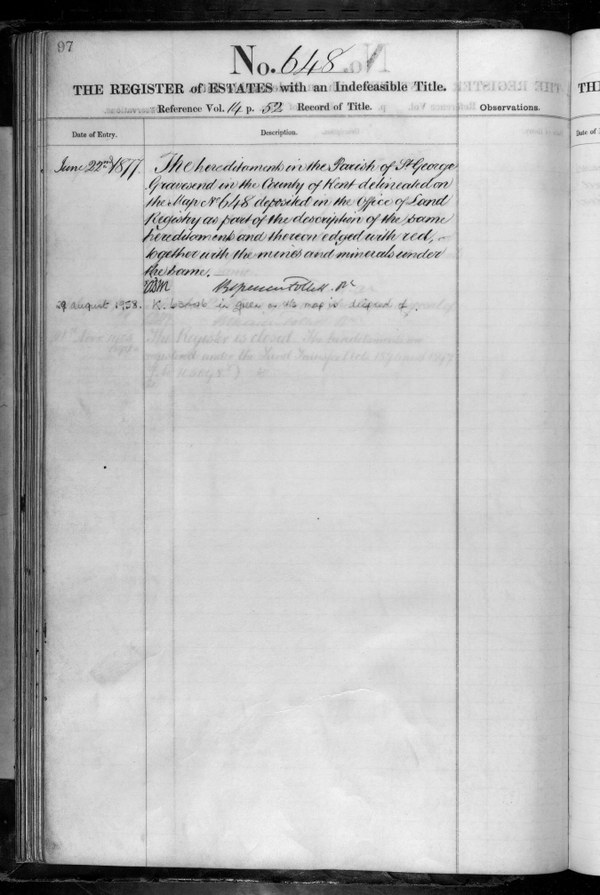 97
No. 648
THE REGISTER of ESTATES with an Indefeasible Title.
Reference Vol. 14 p. 52 Record of Title.
Observations.
Date of Entry.
Description.
June 22nd 1877
The hereditaments in the Parish of St George
Gravesend in the County of Kent delineated on
the Map No 648 deposited in the Office of Land
Registry as part of the description of the same
hereditaments and thereon edged with red,
together with the mines and minerals under
the same.
29 August 1938. in green on the map is disposed of.
The Register is closed. The hereditaments are
registered under the Land Transfer Acts 1875 and 1897
TH
Date of